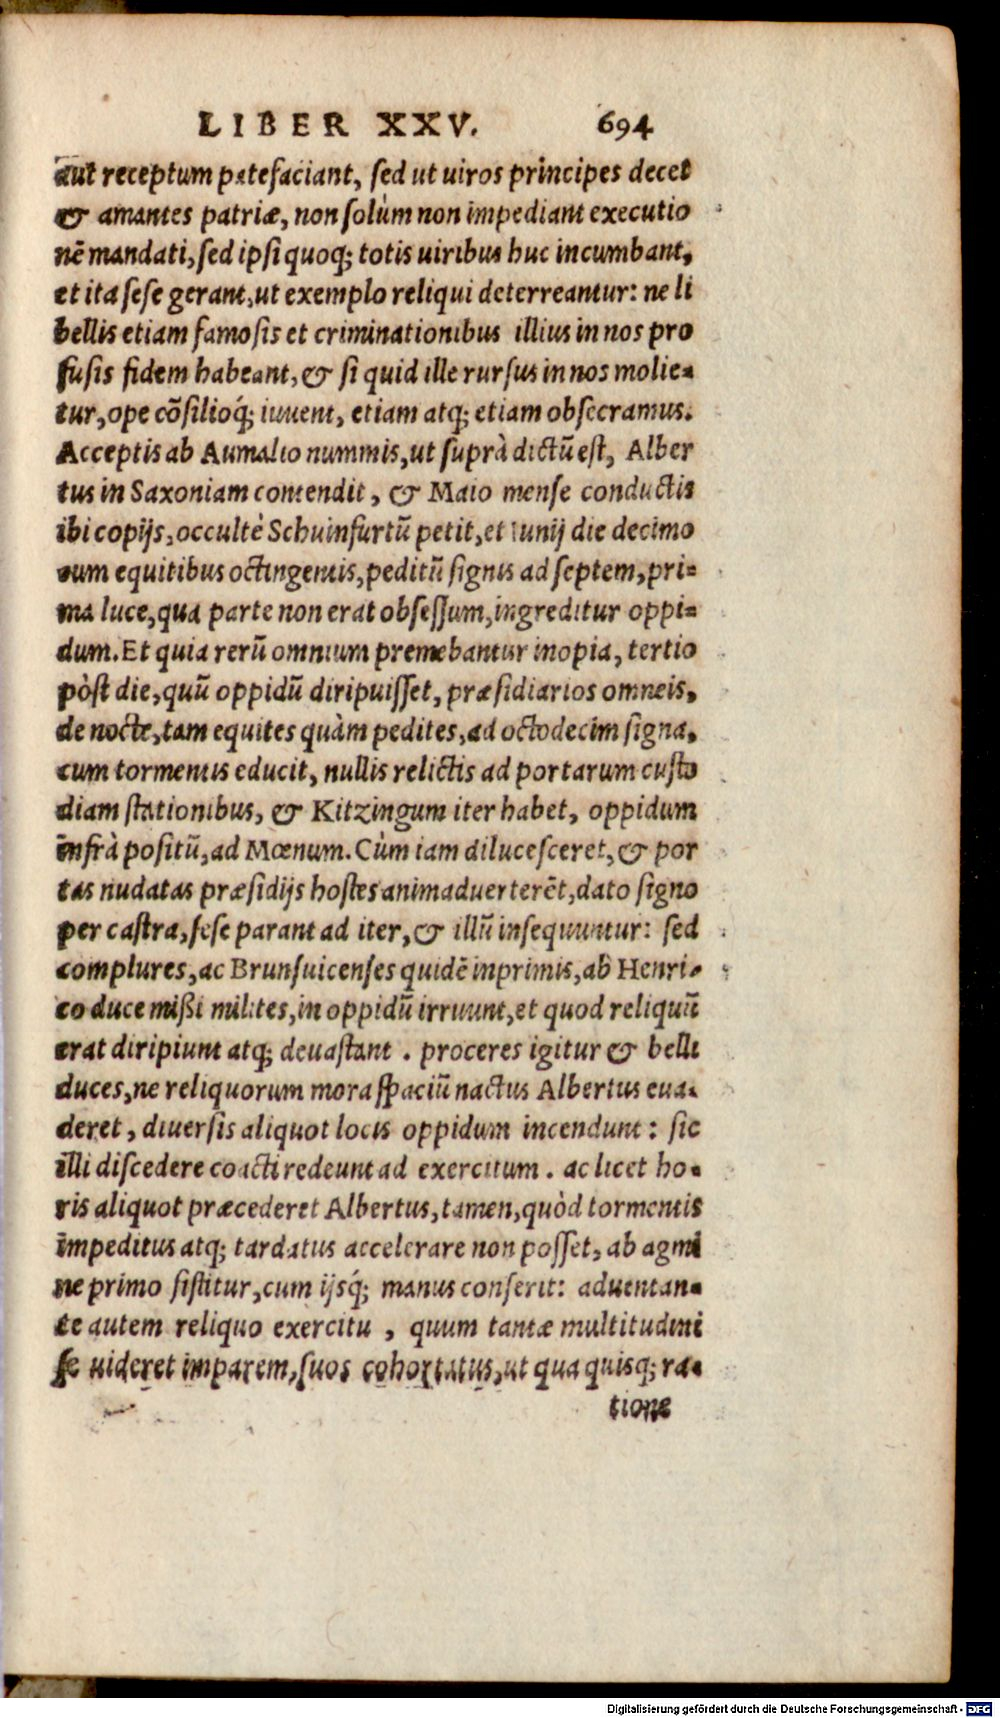 LIBER XXV. 694
aut receptum patefaciant, sed ut uiros principes decet
& amantes patriæ, non solùm non impediant executio
nẽ mandati, sed ipsi quoq; totis uiribus huc incumbant,
et ita sese gerant, ut exemplo reliqui deterreantur: ne li
bellis etiam famosis et criminationibus illius in nos pro
fusis fidem habeant, & si quid ille rursus in nos molie-
tur, ope cõsilioq́; iuuent, etiam atq; etiam obsecramus.
Acceptis ab Aumalio nummis, ut suprà dictũ est, Alber
tus in Saxoniam contendit, & Maio mense conductis
ibi copijs, occultè Schuinfurtũ petit, et Iunij die decimo
cum equitibus octingentis, peditũ signis ad septem, pri-
ma luce, qua parte non erat obsessum, ingreditur oppi-
dum. Et quia rerũ omnium premebantur inopia, tertio
pòst die, quũ oppidũ diripuisset, præsidiarios omneis,
de nocte, tam equites quàm pedites, ad octodecim signa,
cum tormentis educit, nullis relictis ad portarum custo
diam stationibus, & Kitzingum iter habet, oppidum
infrà positũ, ad Mœnum. Cùm iam dilucesceret, & por
tas nudatas præsidijs hostes animaduerterẽt, dato signo
per castra, sese parant ad iter, & illũ insequuntur: sed
complures, ac Brunsuicenses quidẽ inprimis, ab Henri-
co duce mißi milites, in oppidũ irruunt, et quod reliquũ
erat diripiunt atq; deuastant. proceres igitur & belli
duces, ne reliquorum mora spaciũ nactus Albertus eua-
deret, diuersis aliquot locis oppidum incendunt: sic
illi discedere coacti redeunt ad exercitum. ac licet ho-
ris aliquot præcederet Albertus, tamen, quòd tormentis
impeditus atq; tardatus accelerare non posset, ab agmi
ne primo sistitur, cum ijsq́; manus conserit: aduentan-
te autem reliquo exercitu, quum tantæ multitudini
se uideret imparem, suos cohortatus, ut qua quisq; ra-
tione
Digitalisierung gefördert durch die Deutsche Forschungsgemeinschaft - DFG